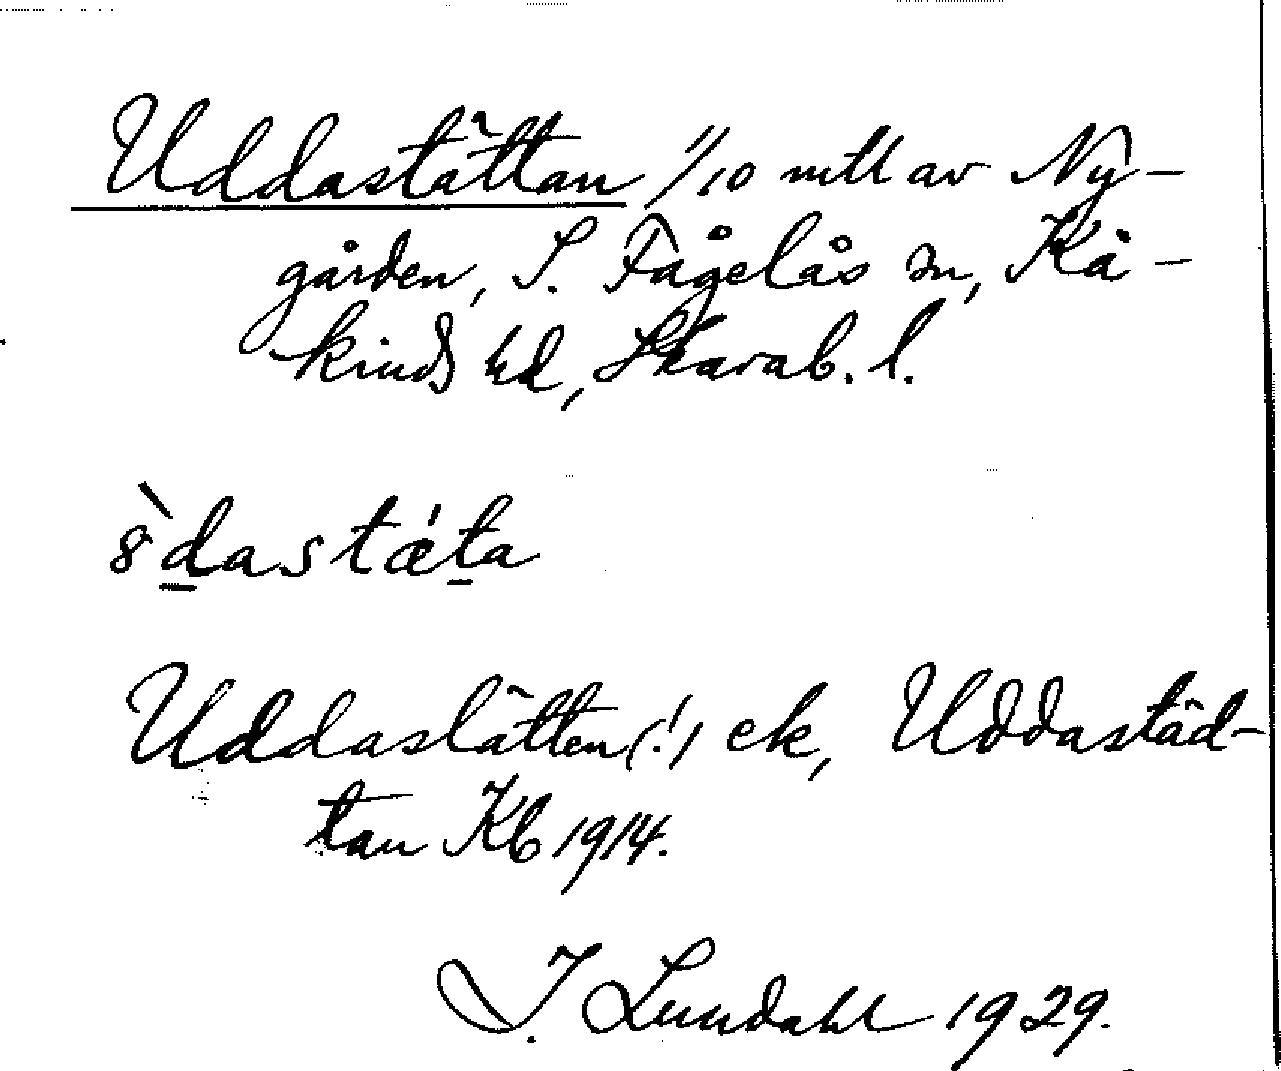 Uddastättan 1/10 mtl av Ny-
gården, S. Fågelås sn, Kå-
kinds hd, Skarab. l.
8̀dastǽta
Uddaslätten (!) ek, Uddastäd-
tan Kb 1914.
I. Lundahl 1929.